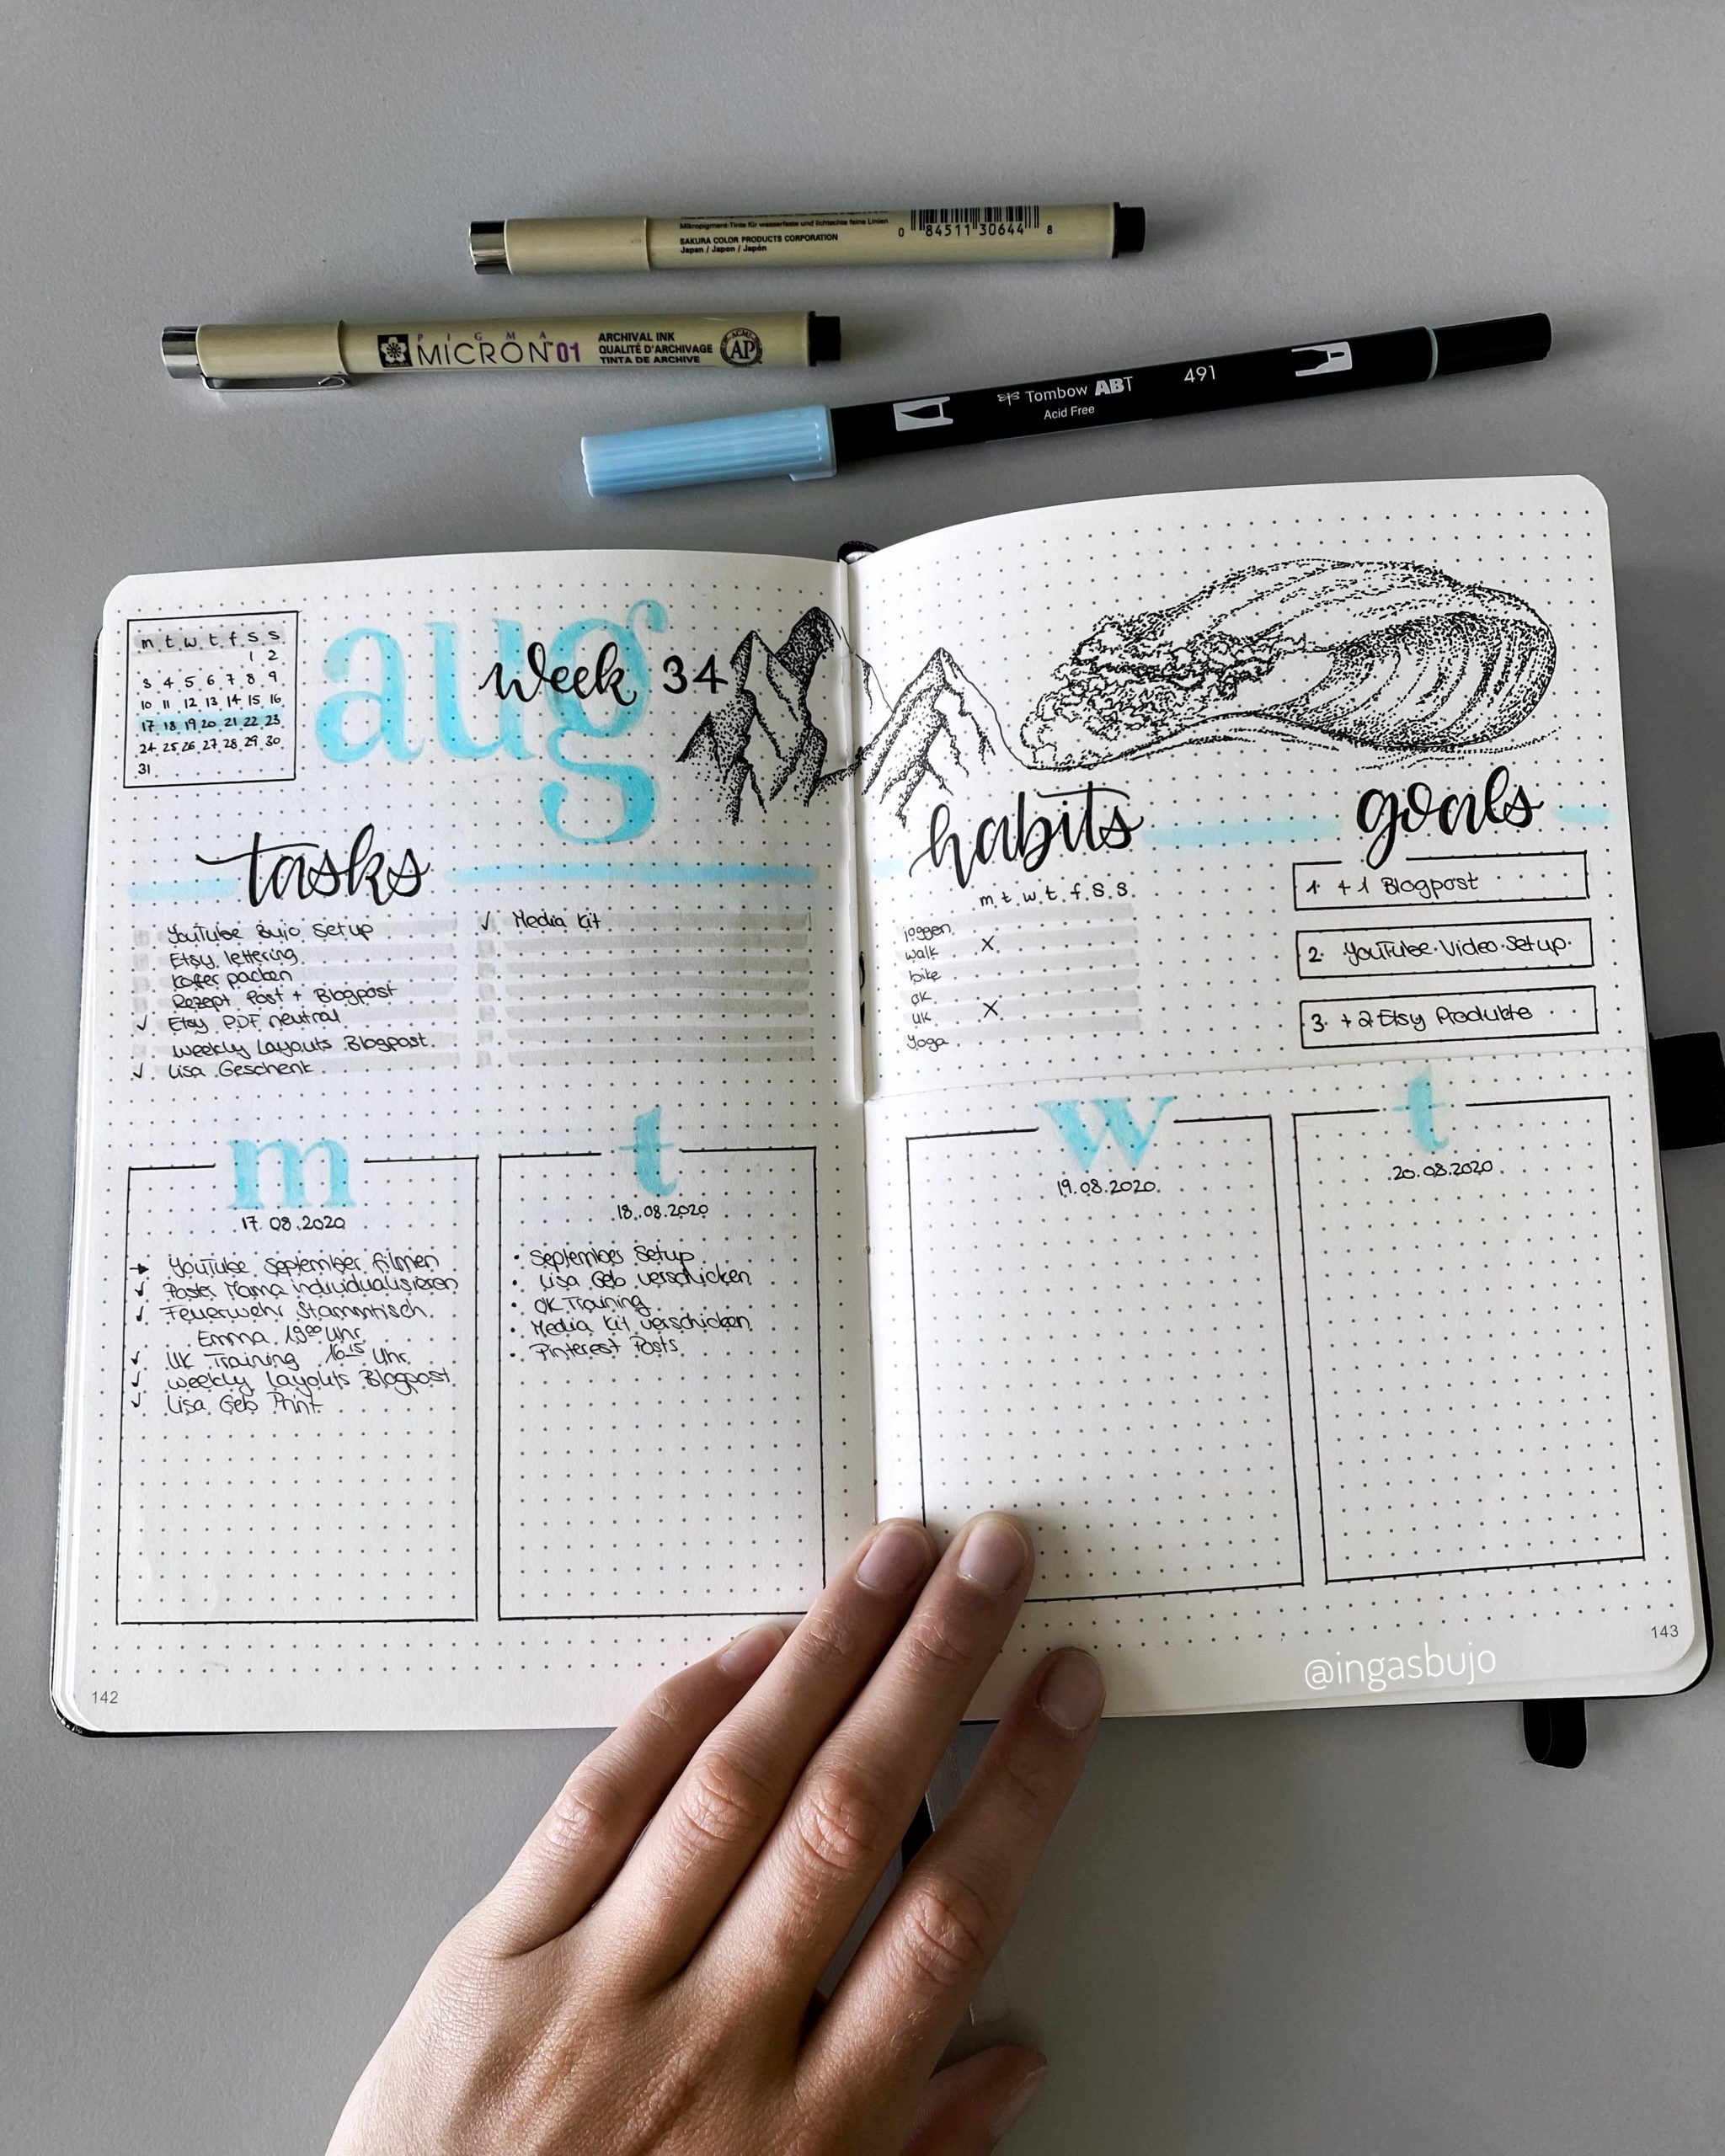 Mikropigment-Tinte für wasserfeste und lichtechte feine Linien
SAKURA COLOR PRODUCTS CORPORATION
Japan / Japon / Japón
0 84511 30644 8
PIGMA
MICRON 01
ARCHIVAL INK
QUALITÉ D'ARCHIVAGE
TINTA DE ARCHIVE
ACMI
AP
Tombow ABT 491
Acid Free
m t w t f s s
1 2
3 4 5 6 7 8 9
10 11 12 13 14 15 16
17 18 19 20 21 22 23
24 25 26 27 28 29 30
31
aug
week 34
tasks
YouTube Bujo Setup
Etsy lettering
Koffer packen
Rezept Post + Blogpost
✓ Etsy PDF neutral
Weekly Layouts Blogpost
✓ Lisa Geschenk
✓ Media Kit
habits
m t w t f s s
joggen
walk x
bike
OK
UK x
Yoga
goals
1. +1 Blogpost
2. YouTube Video Setup
3. +2 Etsy Produkte
m
17.08.2020
→ YouTube September filmen
✓ Poster Mama individualisieren
✓ Feuerwehr Stammtisch
Emma 19⁰⁰ Uhr
✓ UK Training 16¹⁵ Uhr
✓ Weekly Layouts Blogpost
✓ Lisa Geb Print
t
18.08.2020
• September Setup
• Lisa Geb verschicken
• OK Training
• Media Kit verschicken
• Pinterest Posts
w
19.08.2020
t
20.08.2020
142
143
@ingasbujo